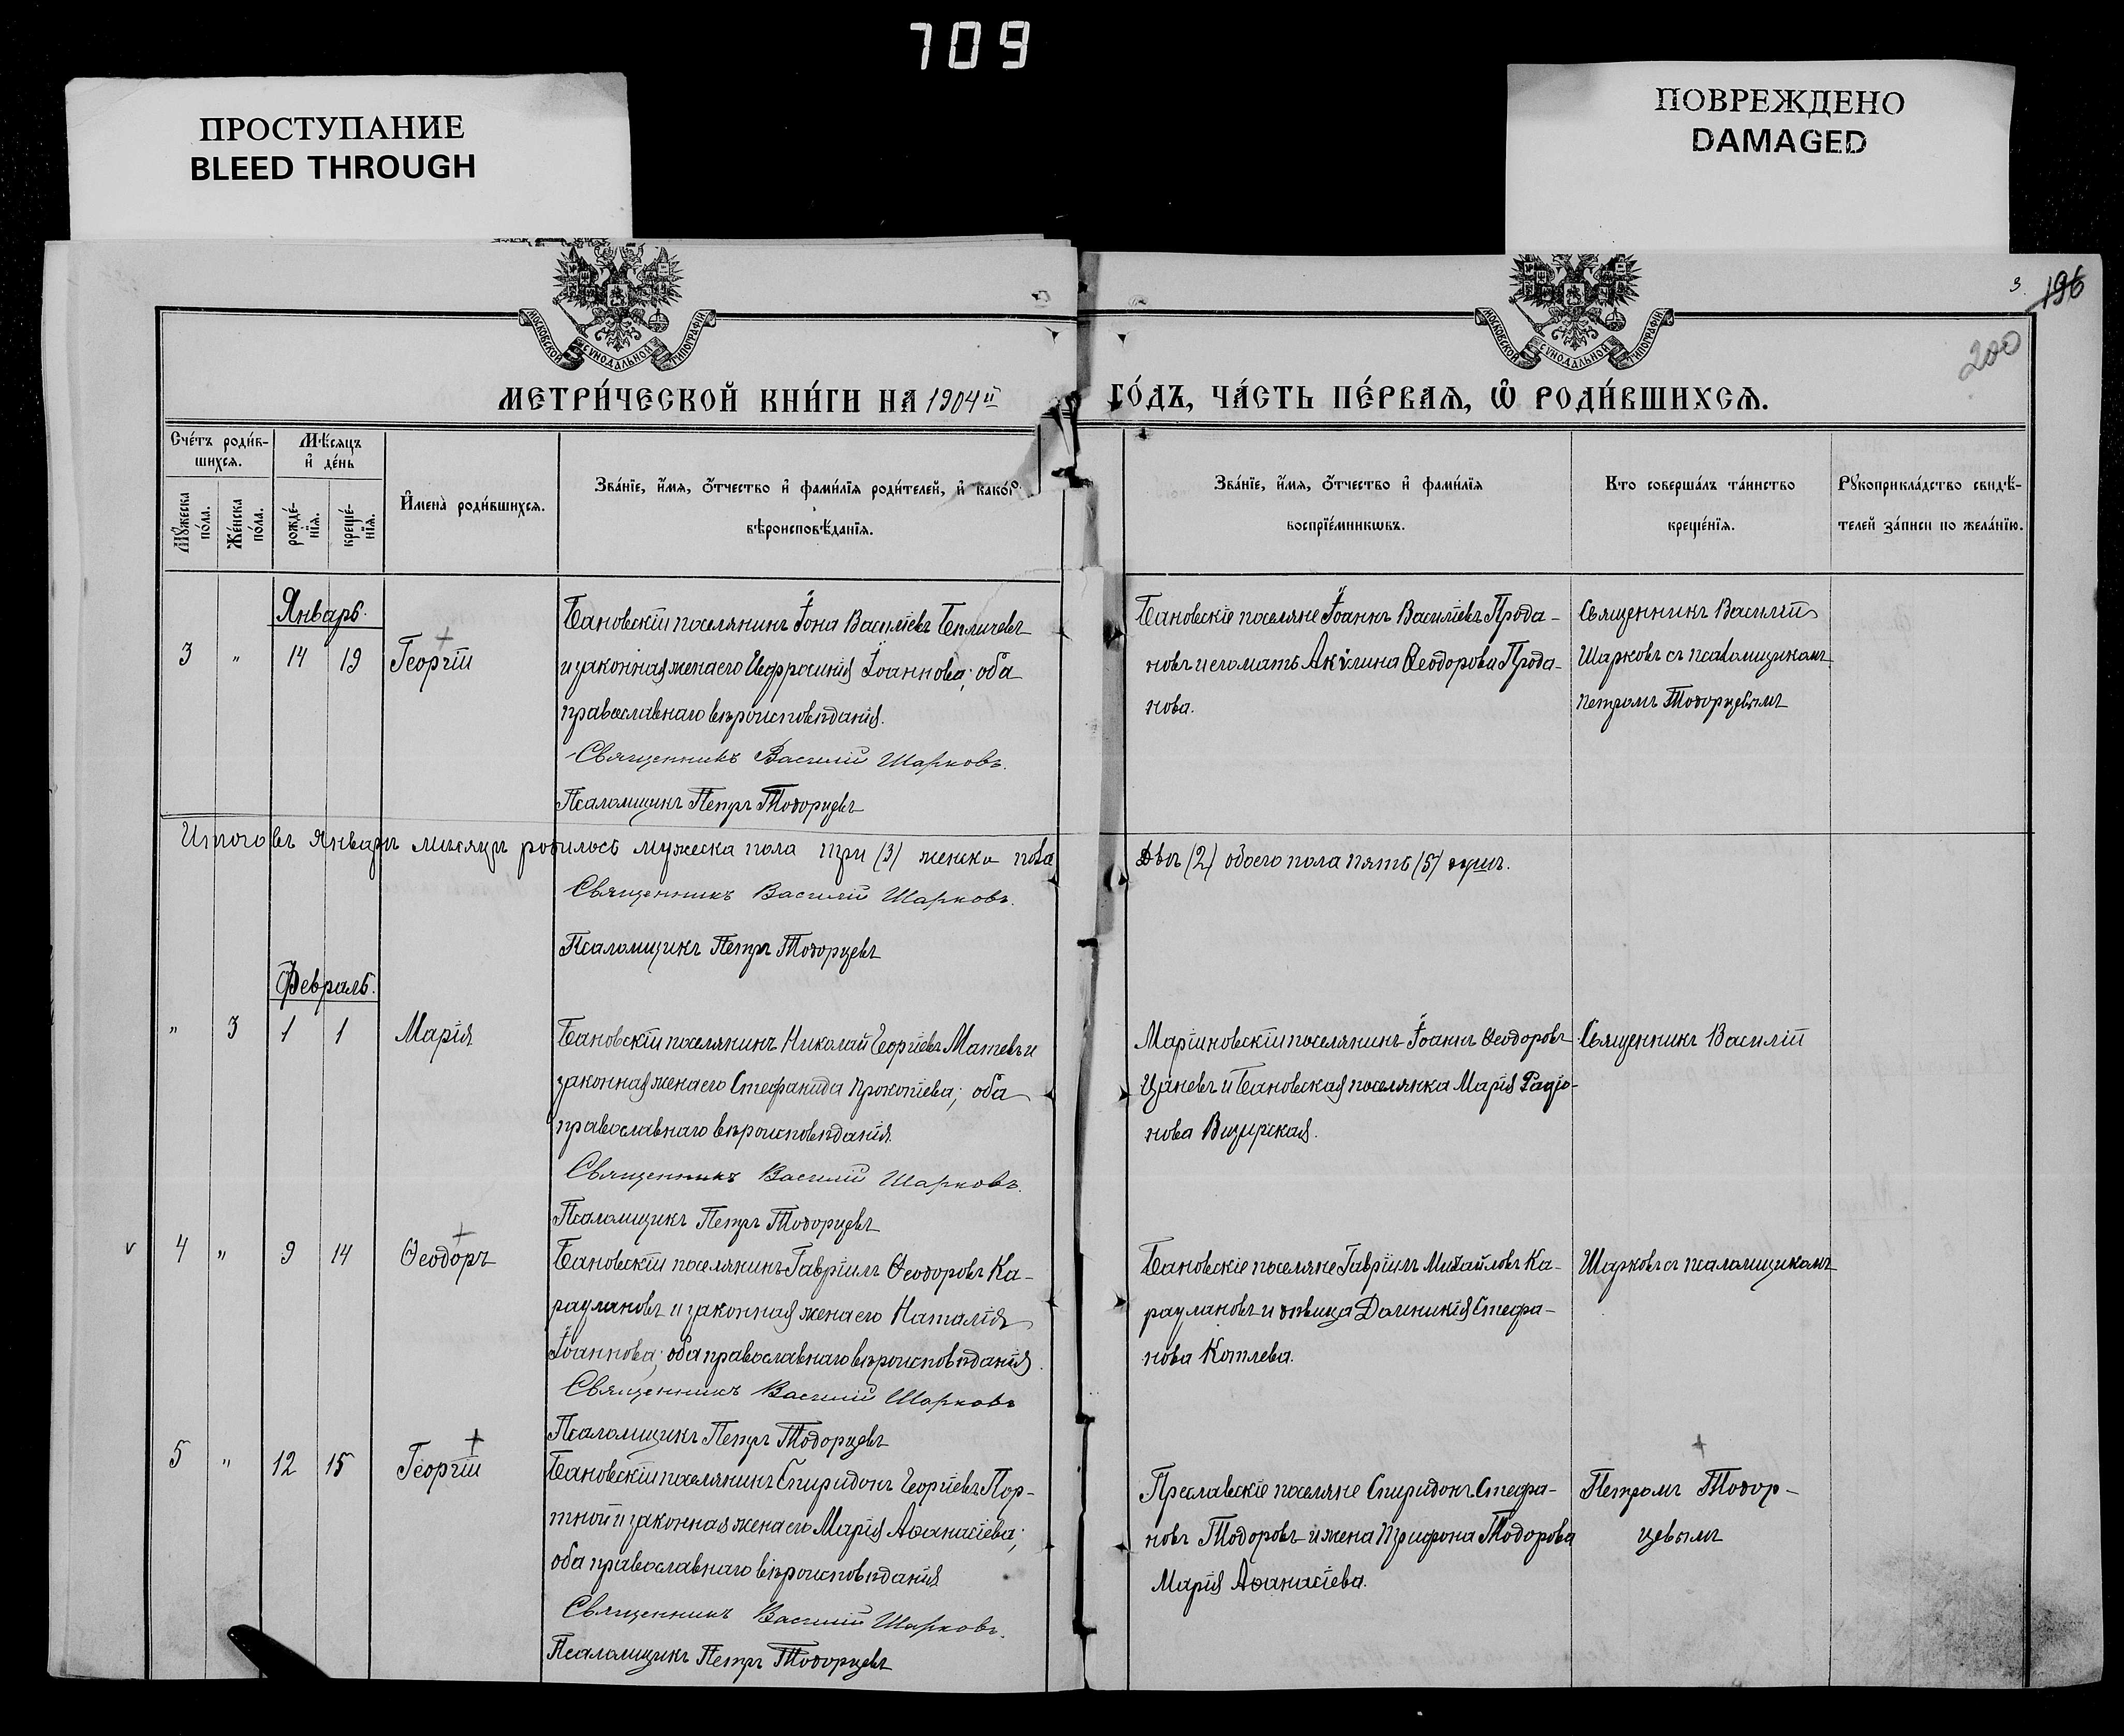 709
ПРОСТУПАНИЕ
BLEED THROUGH
ПОВРЕЖДЕНО
DAMAGED
МОСКОВСКОЙ СѴНОДАЛЬНОЙ ТИПОГРАФІИ
МОСКОВСКОЙ СѴНОДАЛЬНОЙ ТИПОГРАФІИ
3. 196
200
МЕТРИ́ЧЕСКОЙ КНИ́ГИ НА 1904й ГО́ДЪ, ЧА́СТЬ ПЕ́РВАЯ, Ѡ҆ РОДИ́ВШИХСЯ.
Сче́тъ роди́в-
шихся.
Мѣ́сяцъ
и҆ де́нь
Мꙋ́жеска
по́ла.
Же́нска
по́ла.
рожде́-
нїя.
креще́-
нїя.
И҆мена̀ роди́вшихся.
Зва́нїе, и҆́мя, ѻ҆́тчество и҆ фами́лїя роди́телей, и҆ како́г
вѣроисповѣ́данїя.
Зва́нїе, и҆́мя, ѻ҆́тчество и҆ фами́лїя
воспрїе́мникѡвъ.
Кто соверша́лъ та́инство
креще́нїя.
Рꙋкоприкла́дство свидѣ́-
телей за́писи по жела́нїю.
Январь.
3 " 14 19 Георгій
Бановскій поселянинъ Іона Василіевъ
и законная жена его Евфросинія Іоаннова; оба
православнаго вѣроисповѣданія.
Священникъ Василій Шарковъ.
Псаломщикъ Петръ Тодорцевъ
Бановскіе поселяне Іоаннъ Василіевъ Прода-
новъ и его мать Акилина Ѳеодорова Прода-
нова.
Священникъ Василій
Шарковъ съ псаломщикомъ
Петромъ Тодорцевымъ
Итого въ Январѣ мѣсяцѣ родилось мужеска пола три (3) женска пола Двѣ (2) обоего пола пять (5) душъ.
Священникъ Василій Шарковъ.
Псаломщикъ Петръ Тодорцевъ
Февраль.
" 3 1 1 Марія
Бановскій поселянинъ Николай Георгіевъ Матевъ и
законная жена его Стефанида Прокопіева; оба
православнаго вѣроисповѣданія.
Священникъ Василій Шарковъ.
Псаломщикъ Петръ Тодорцевъ
Маріиновскій поселянинъ Іоаннъ Ѳеодоровъ
Цаневъ и Бановская поселянка Марія Радіо-
нова Визирская.
Священникъ Василій
v 4 " 9 14 Ѳеодоръ
Бановскій поселянинъ Гавріилъ Ѳеодоровъ Ка-
раулановъ и законная жена его Наталія
Іоаннова; оба православнаго вѣроисповѣданія.
Священникъ Василій Шарковъ
Псаломщикъ Петръ Тодорцевъ
Бановскіе поселяне Гавріилъ Михайловъ Ка-
раулановъ и дѣвица Домникія Стефа-
нова Котлева.
Шарковъ съ псаломщикомъ
5 " 12 15 Георгій
Бановскій поселянинъ Спиридонъ Георгіевъ Пор-
тной и законная жена его Марія Аѳанасіева;
оба православнаго вѣроисповѣданія
Священникъ Василій Шарковъ.
Псаломщикъ Петръ Тодорцевъ
Преславскіе поселяне Спиридонъ Стефа-
новъ Тодоровъ и жена Трифона Тодорова
Марія Аѳанасіева.
Петромъ Тодор-
цевымъ